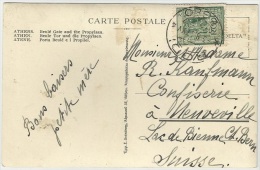 CARTE POSTALE
ATHENES. Beulé Gate and the Propylaea.
ATHEN. Beulé Tor und die Propyläen.
ATENE. Porta Beulé e i Propilei.
Bons baisers
petite mère
Monsieur Madame
R. Kaufmann
Confiserie
à Neuveville
Lac de Bienne Ct. Bern
Suisse.